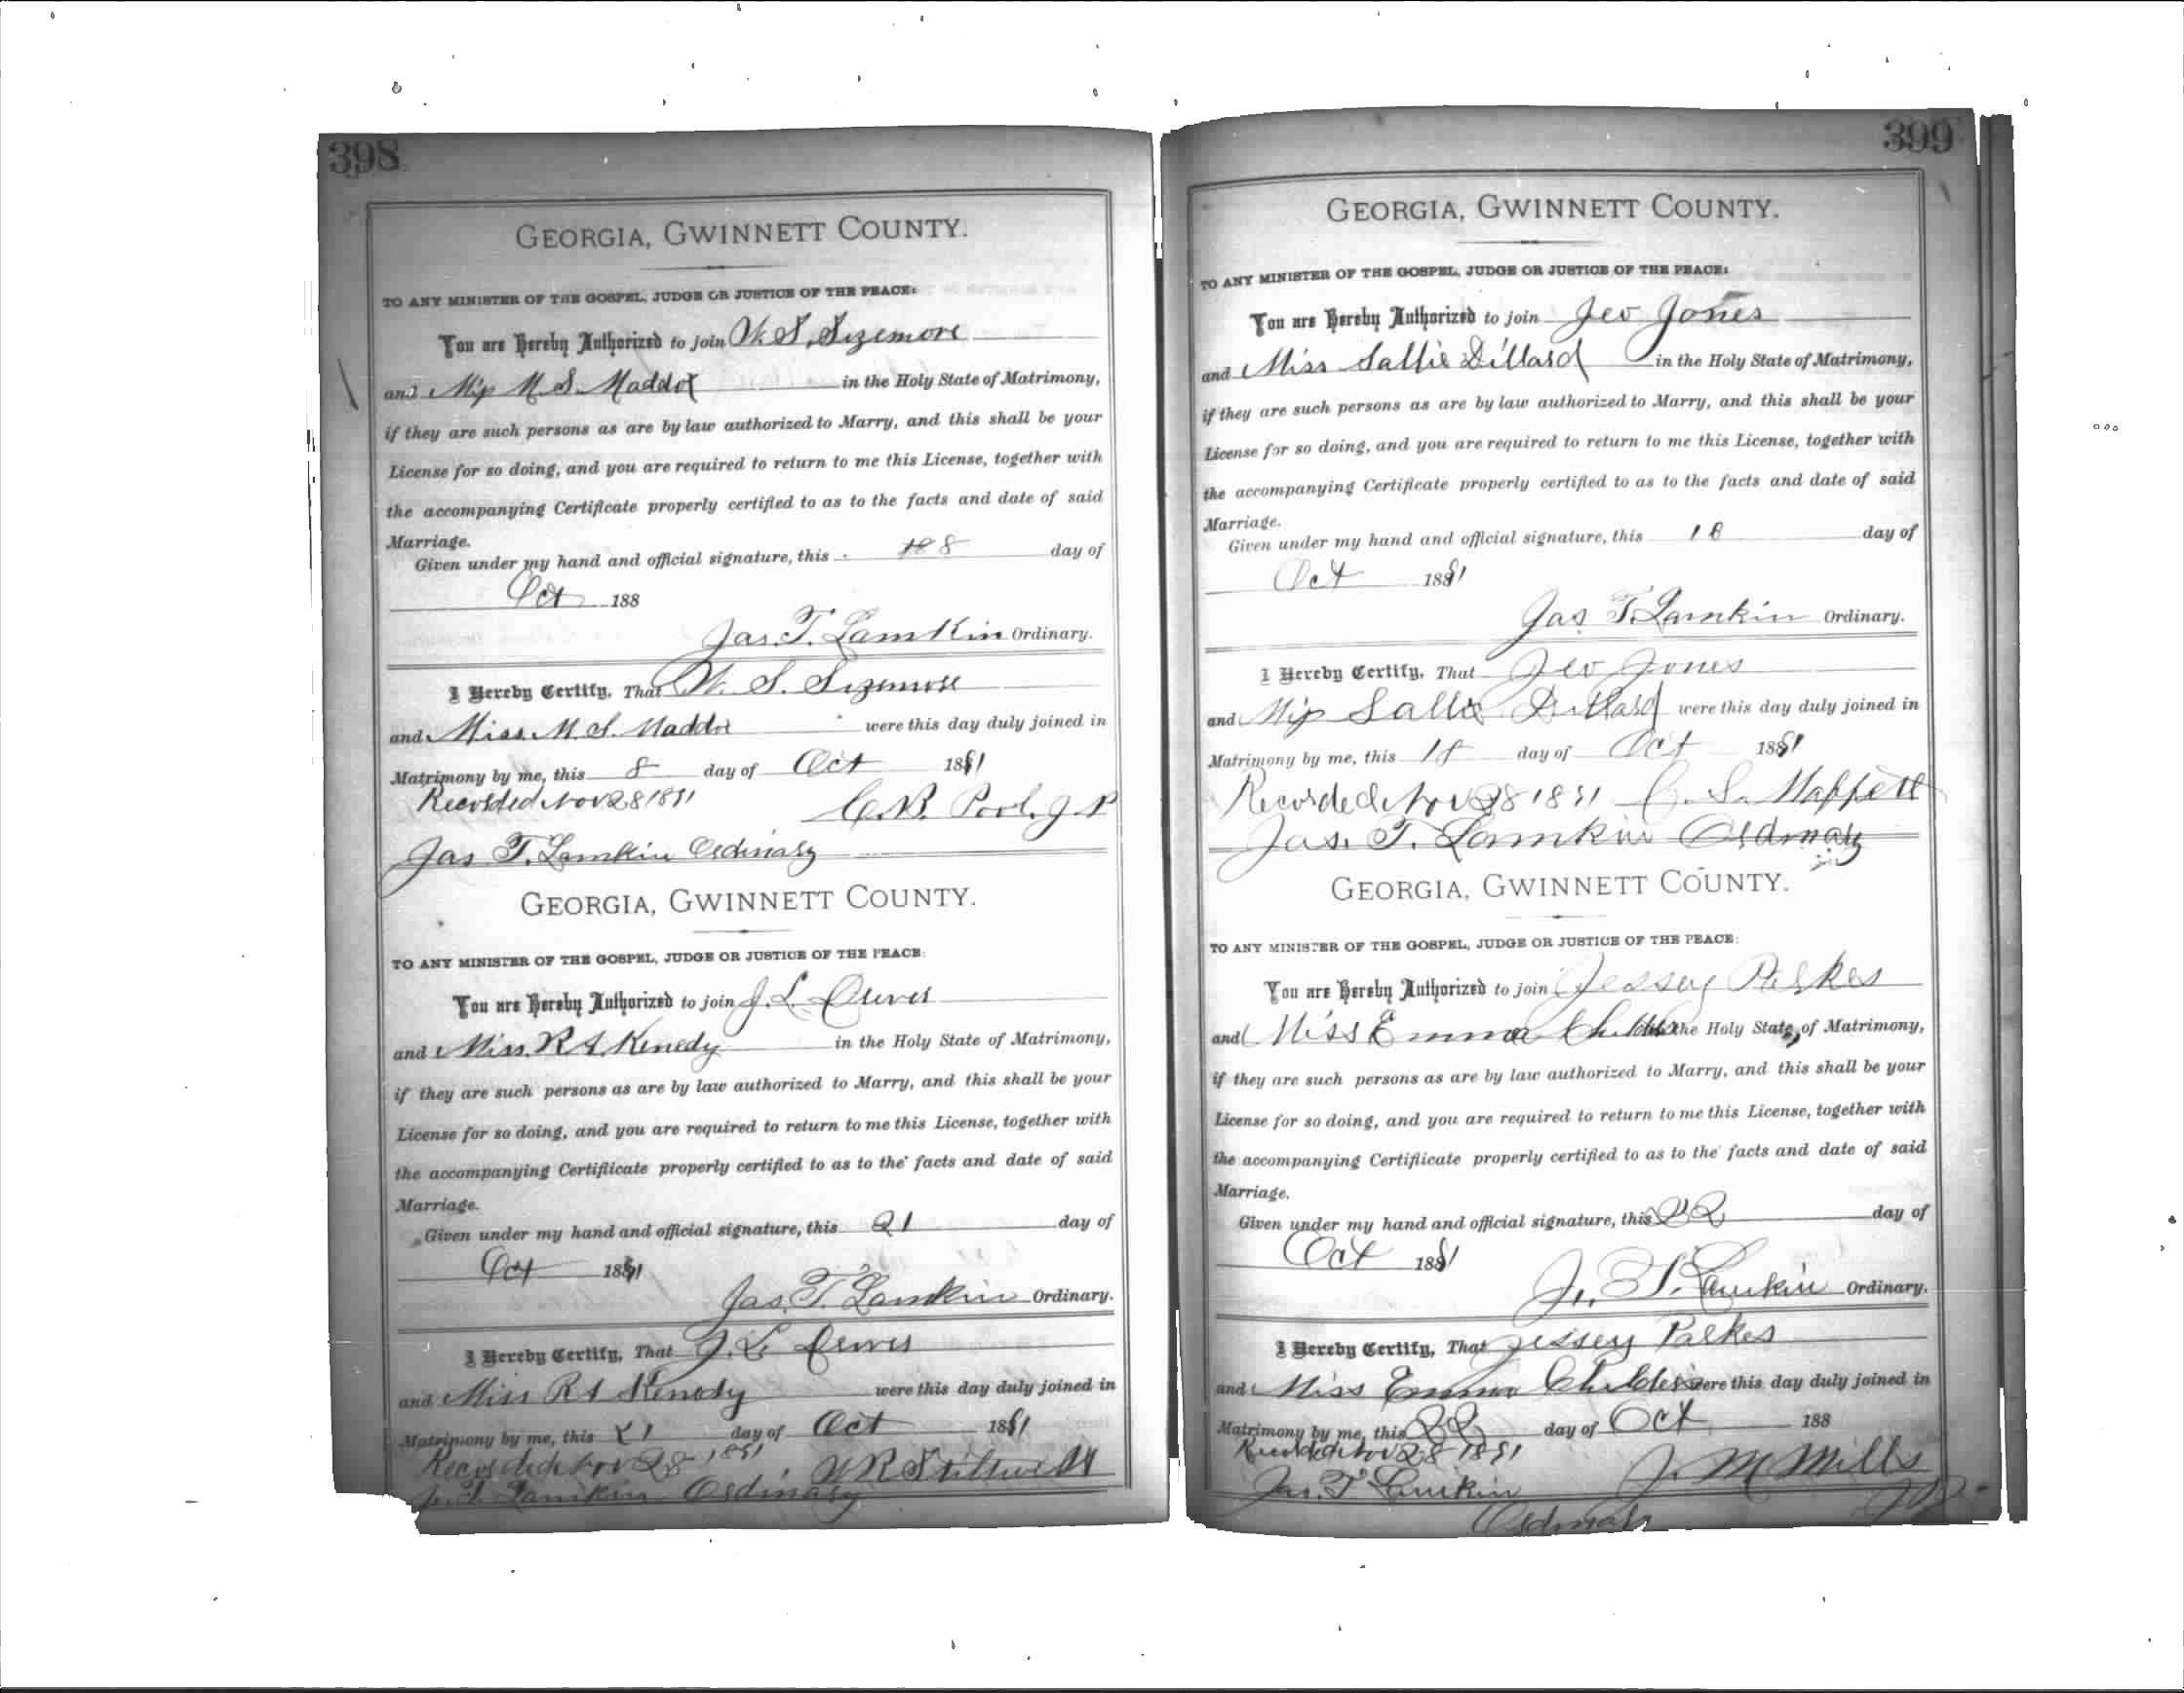 398
GEORGIA, GWINNETT COUNTY.
TO ANY MINISTER OF THE GOSPEL, JUDGE OR JUSTICE OF THE PEACE:
You are Hereby Authorized to join W. S. Sizemore
and Miss M. S. Maddox in the Holy State of Matrimony,
if they are such persons as are by law authorized to Marry, and this shall be your
License for so doing, and you are required to return to me this License, together with
the accompanying Certificate properly certified to as to the facts and date of said
Marriage.
Given under my hand and official signature, this 8 day of
Oct 188
Jas. T. Lamkin Ordinary.
I Hereby Certify, That W. S. Sizemore
and Miss M. S. Maddox were this day duly joined in
Matrimony by me, this 8 day of Oct 1891
Recorded Nov 28 1891 C. B. Pool, J. P
Jas T. Lamkin Ordinary
GEORGIA, GWINNETT COUNTY.
TO ANY MINISTER OF THE GOSPEL, JUDGE OR JUSTICE OF THE PEACE:
You are Hereby Authorized to join J. L.
and Miss R A Kenedy in the Holy State of Matrimony,
if they are such persons as are by law authorized to Marry, and this shall be your
License for so doing, and you are required to return to me this License, together with
the accompanying Certificate properly certified to as to the facts and date of said
Marriage.
Given under my hand and official signature, this 21 day of
Oct 1891
Jas. T. Lamkin Ordinary.
I Hereby Certify, That J. L.
and Miss R A Kenedy were this day duly joined in
Matrimony by me, this 21 day of Oct 1891
Recorded Nov 28 1891 Stillwell
J. T. Lamkin Ordinary
399
GEORGIA, GWINNETT COUNTY.
TO ANY MINISTER OF THE GOSPEL, JUDGE OR JUSTICE OF THE PEACE:
You are Hereby Authorized to join Geo Jones
and Miss Sallie Dillard in the Holy State of Matrimony,
if they are such persons as are by law authorized to Marry, and this shall be your
License for so doing, and you are required to return to me this License, together with
the accompanying Certificate properly certified to as to the facts and date of said
Marriage.
Given under my hand and official signature, this 18 day of
Oct 1891
Jas. T. Lamkin Ordinary.
I Hereby Certify, That Geo Jones
and Miss Sallie Dillard were this day duly joined in
Matrimony by me, this 18 day of Oct 1891
Recorded Nov 28 1891 C. S. Maffett
Jas. T. Lamkin Ordinary
GEORGIA, GWINNETT COUNTY.
TO ANY MINISTER OF THE GOSPEL, JUDGE OR JUSTICE OF THE PEACE:
You are Hereby Authorized to join Jessey Parkes
and Miss Emma Childers in the Holy State, of Matrimony,
if they are such persons as are by law authorized to Marry, and this shall be your
License for so doing, and you are required to return to me this License, together with
the accompanying Certificate properly certified to as to the facts and date of said
Marriage.
Given under my hand and official signature, this 22 day of
Oct 1891
J. T. Lamkin Ordinary.
I Hereby Certify, That Jessey Parkes
and Miss Emma Childers were this day duly joined in
Matrimony by me, this 22 day of Oct 188
Recorded Nov 28 1891 J. M Mills
Jas. T. Lamkin JP
Ordinary